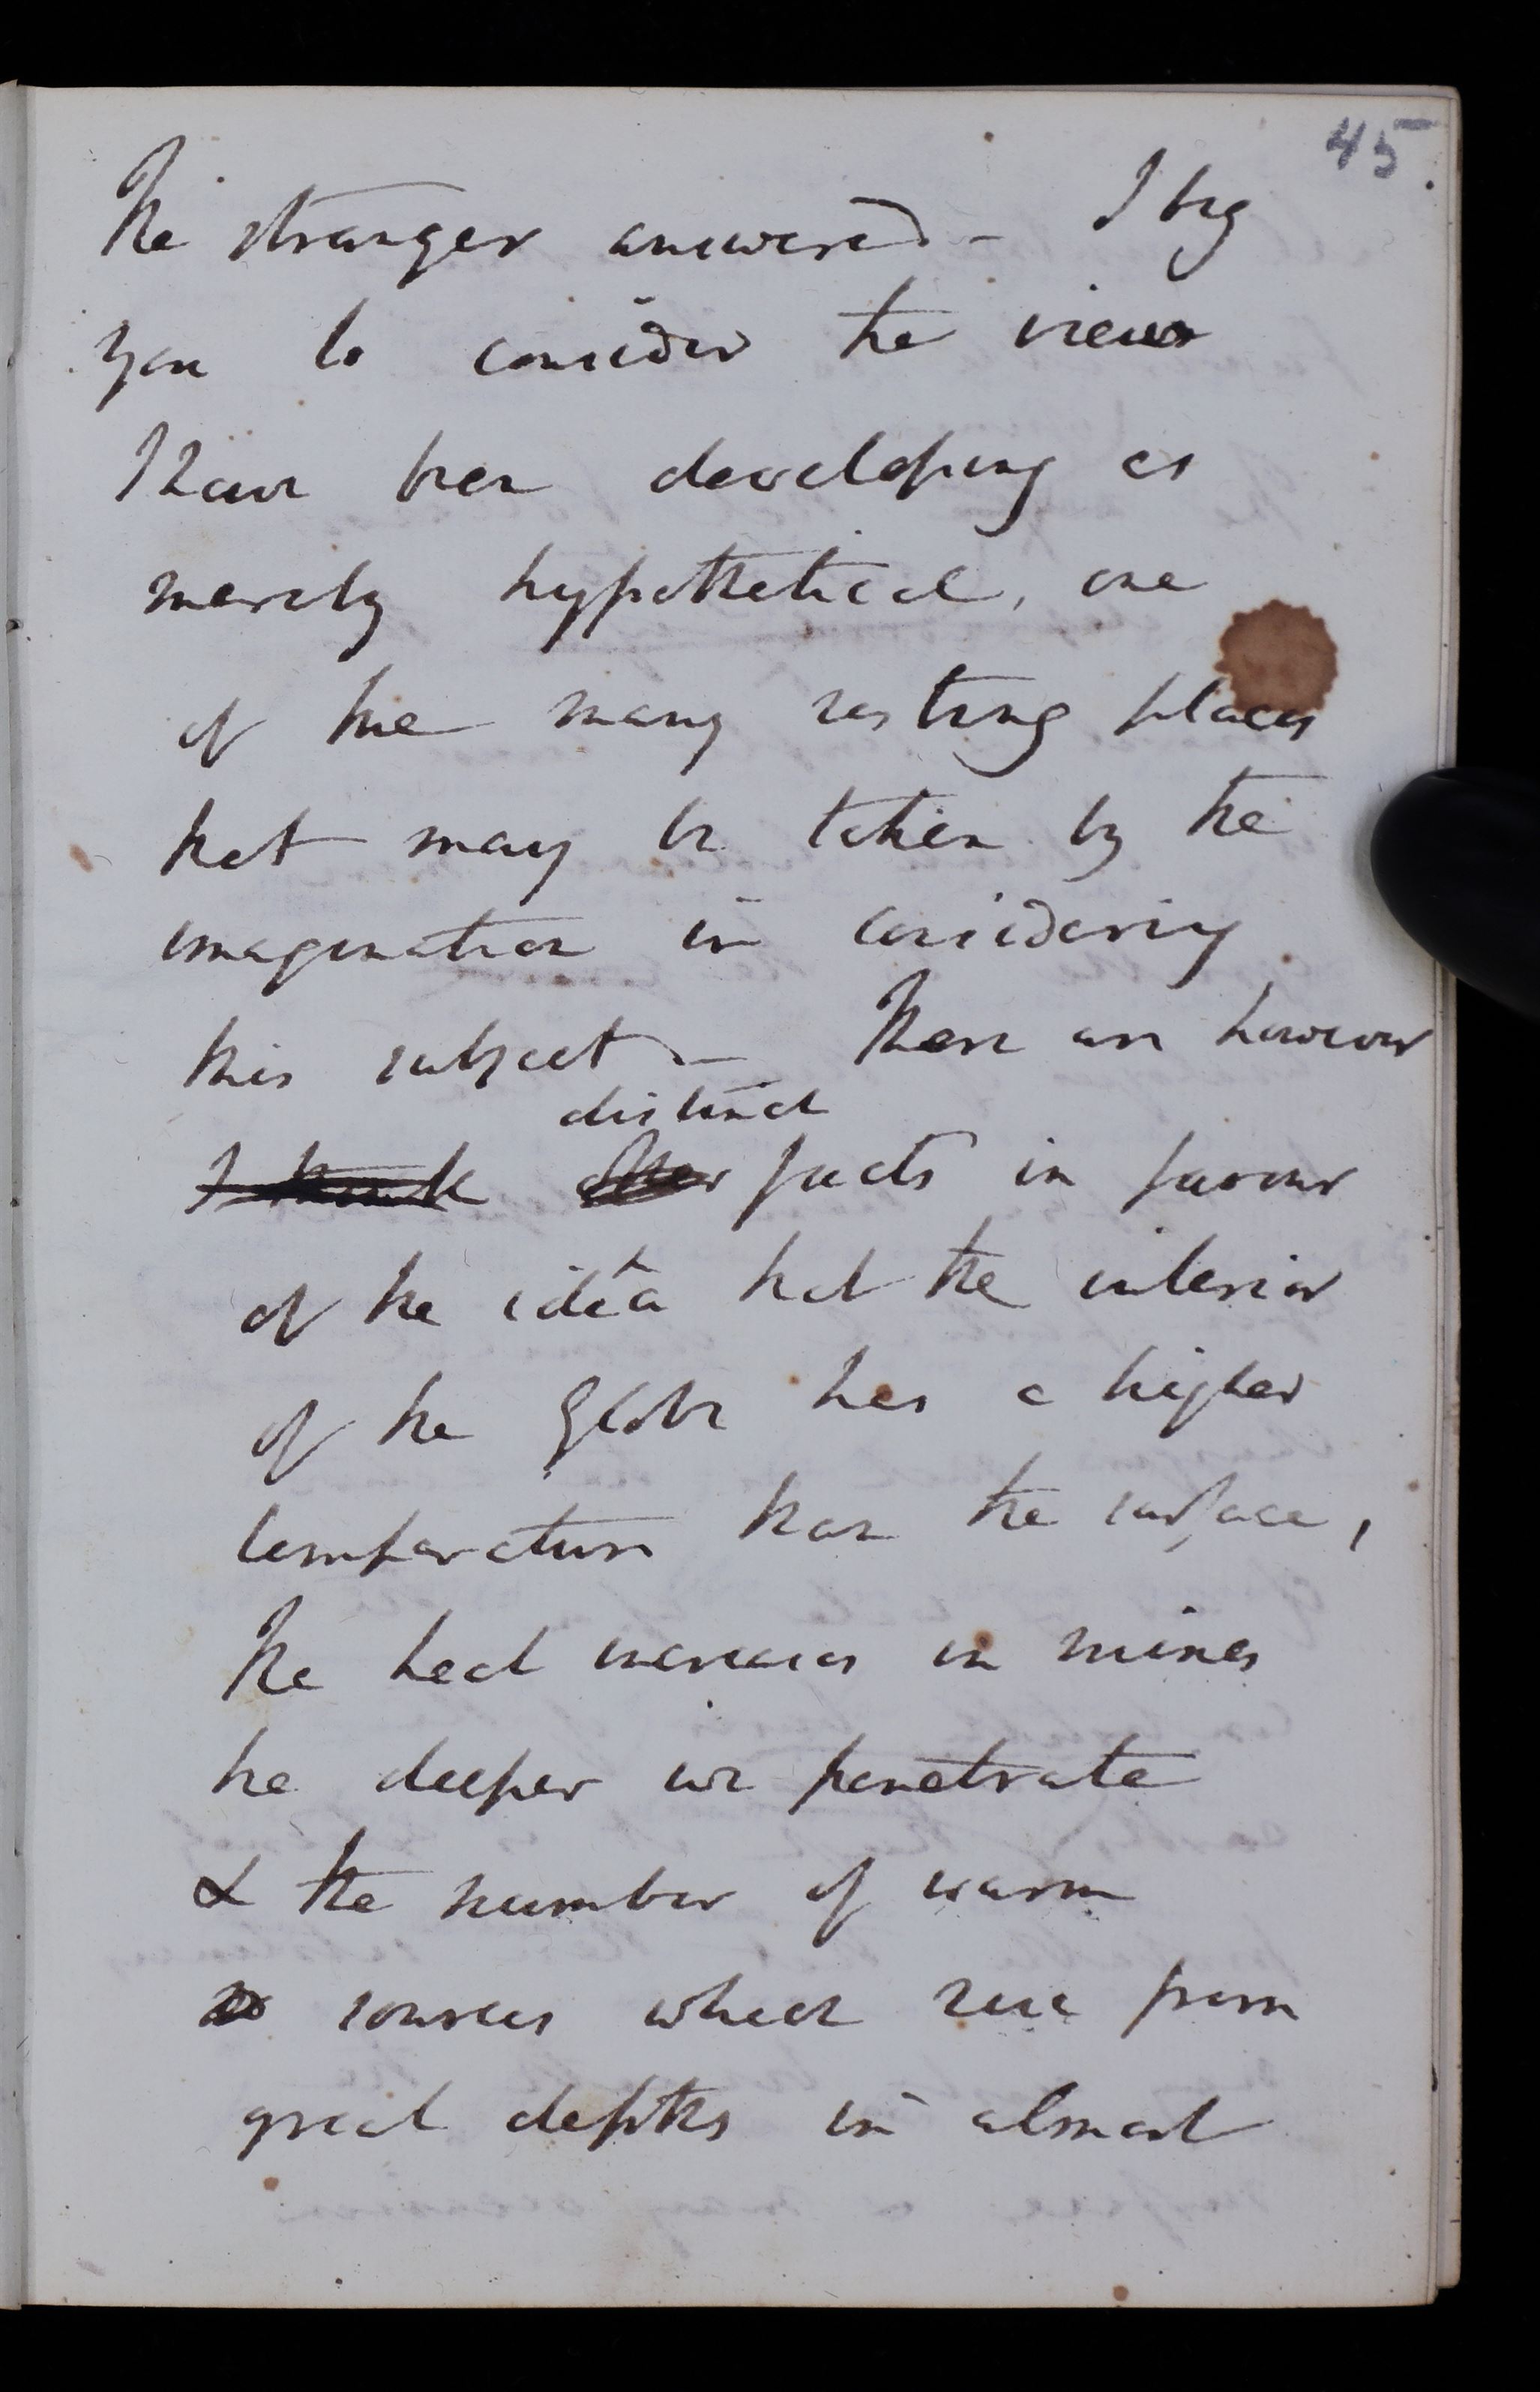 45
The stranger answered - I beg
you to consider the views
I have been developing as
merely hypothetical, one
of the many resting places
that may be taken by the
imagination in considering
this subject. - There are however
distinct
I think other facts in favour
of the idea that the interior
of the Globe has a higher
temperature than the surface,
The heat increases in mines
the deeper we penetrate
& the number of warm
sources which rise from
great depths in almost